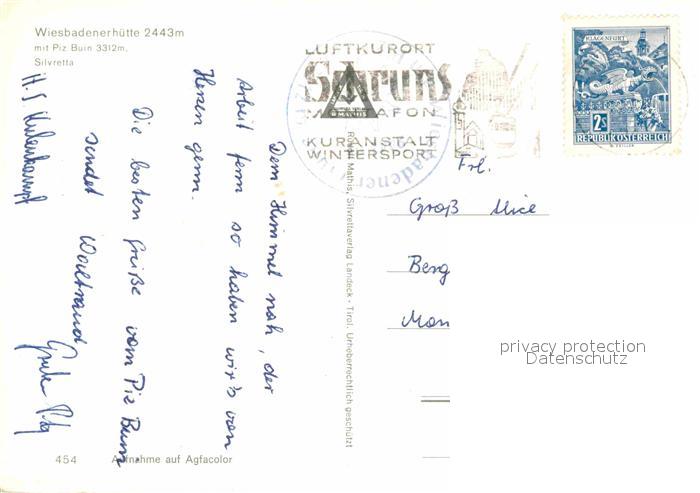 Wiesbadenerhütte 2443m
mit Piz Buin 3312m,
Silvretta
Dem Himmel nah, der
Arbeit fern so haben wir's von
Herzen gern.
Die besten Grüße vom Piz Buin
sendet Waltraud
H.J. Kulenkampf
454 Aufnahme auf Agfacolor
Mathis, Silvrettaverlag Landeck - Tirol. Urheberrechtlich geschützt
LUFTKURORT
Schruns
MONTAFON
KURANSTALT
WINTERSPORT
KLAGENFURT
2S
REPUBLIK ÖSTERREICH
Frl.
Groß Alice
Berg
Mon
privacy protection
Datenschutz